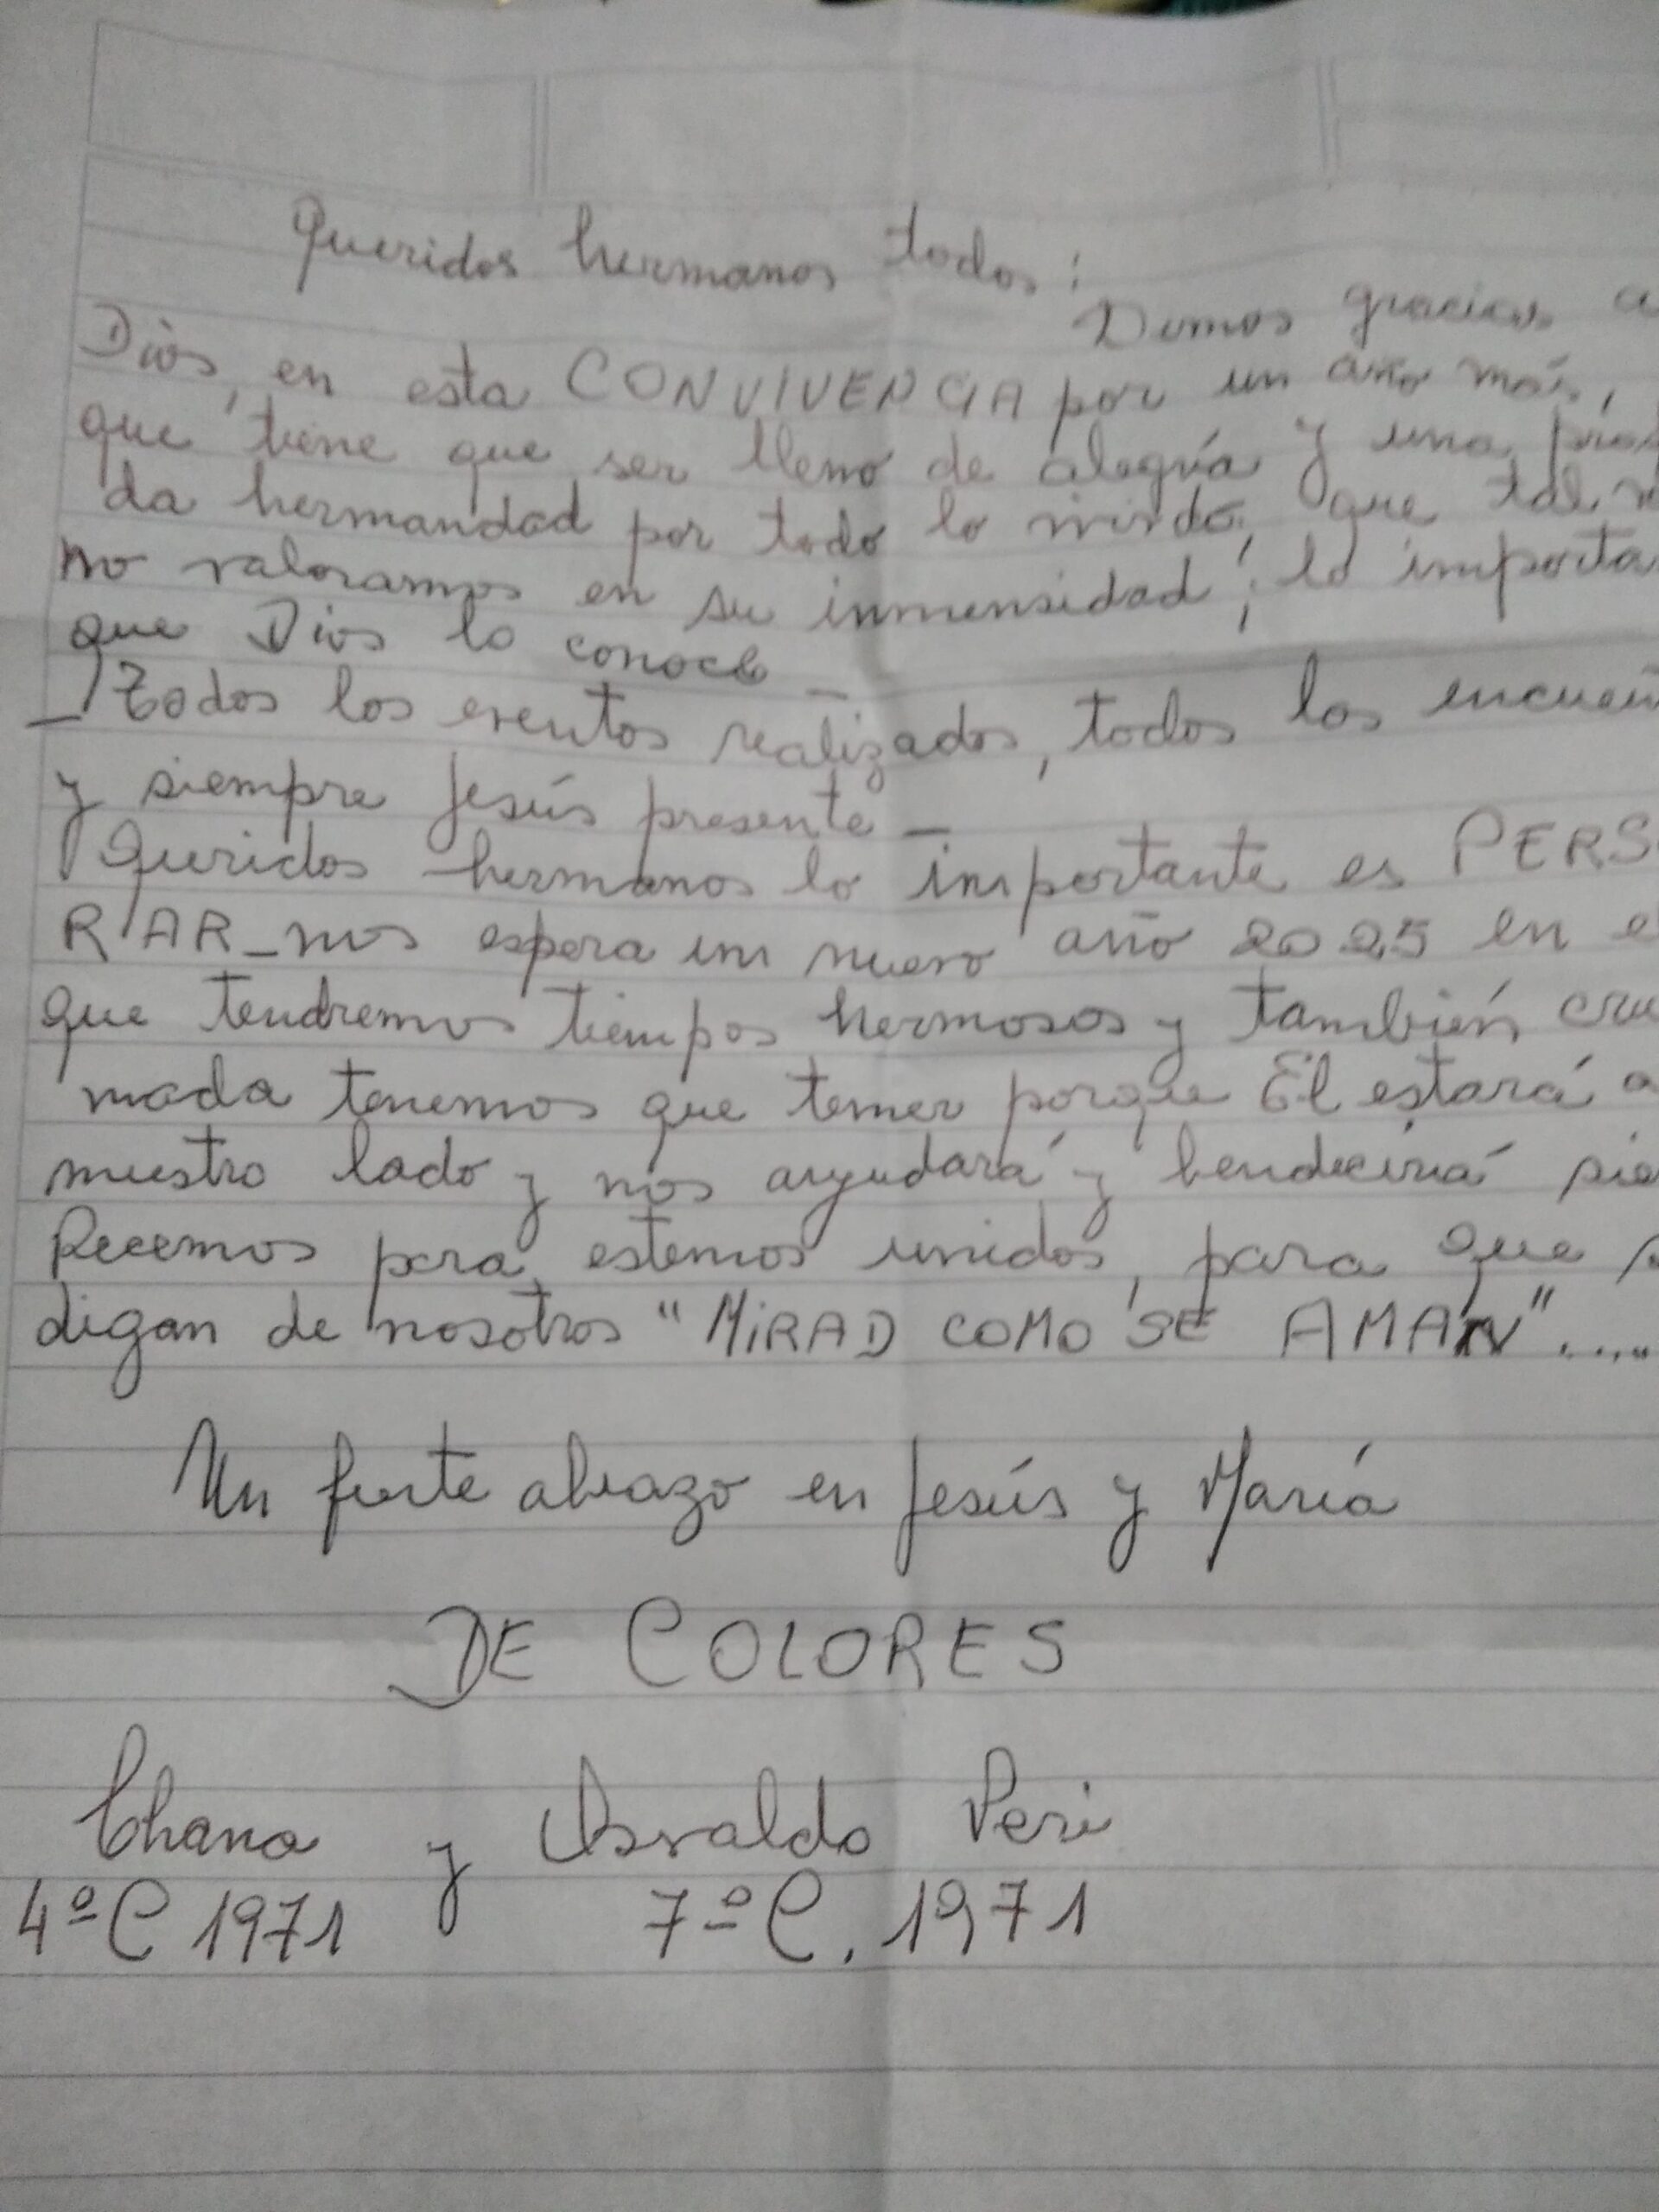 Queridos hermanos todos:
Demos gracias a
Dios, en esta CONVIVENCIA por un año más,
que tiene que ser lleno de alegría y una
da hermandad por todo lo vivido, que tal
no valoramos en su inmensidad; lo importa
que Dios lo conoce_
_Todos los eventos realizados, todos los encuen
y siempre Jesús presente_
Queridos hermanos lo importante es PERS
RAR_nos espera un nuevo año 2025 en e
que tendremos tiempos hermosos y también cru
nada tenemos que temer porque Él estará a
nuestro lado y nos ayudará y bendecirá sie
Recemos para estemos unidos, para que
digan de nosotros "MIRAD COMO SE AMAN".....
Un fuerte abrazo en Jesús y María
DE COLORES
Chana y Osvaldo Peri
4º C 1971 7º C. 1971